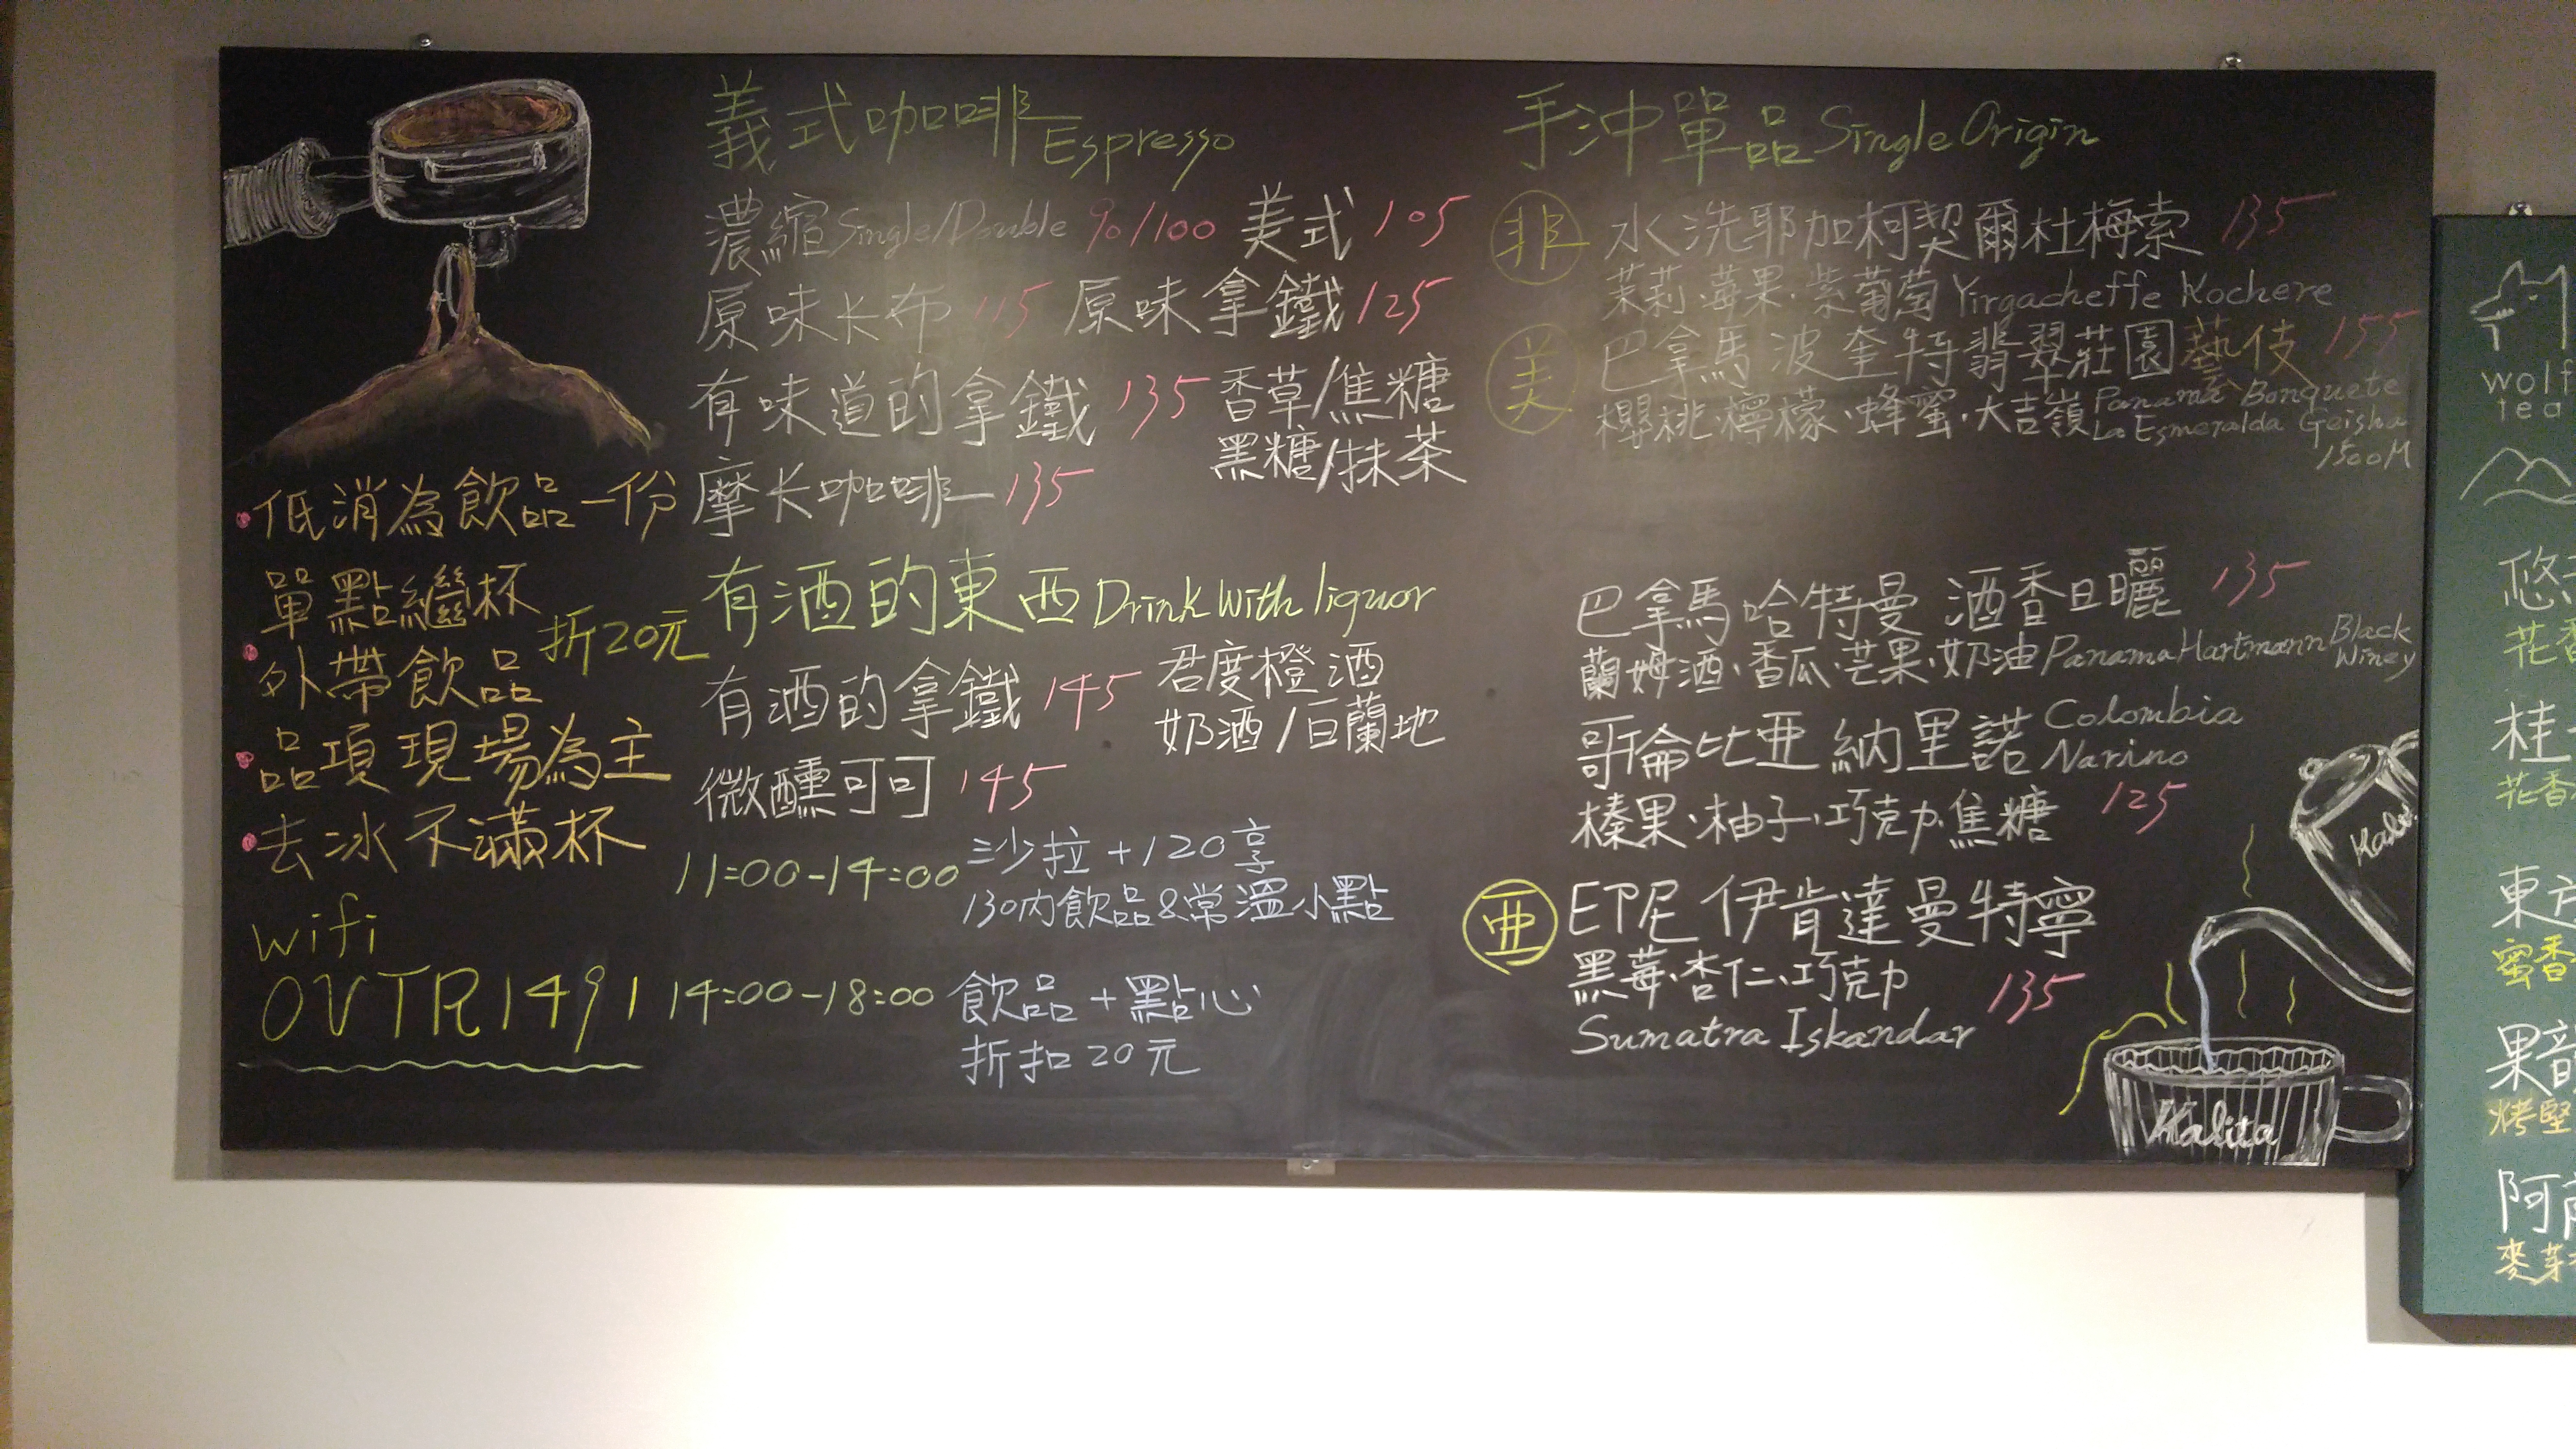 義式咖啡 Espresso
濃縮 Single/Double 90/100 美式 105
原味卡布 115 原味拿鐵 125
有味道的拿鐵 135 香草/焦糖
黑糖/抹茶
摩卡咖啡 135
有酒的東西 Drink With liquor
有酒的拿鐵 145 君度橙酒
奶酒/白蘭地
微醺可可 145
11:00-14:00 沙拉+120享
130內飲品&常溫小點
14:00-18:00 飲品+點心
折扣20元
低消為飲品一份
單點續杯
外帶飲品 折20元
品項現場為主
去冰不滿杯
wifi
OVTR1491
手沖單品 Single Origin
非 水洗耶加柯契爾杜梅索 135
茉莉·莓果·紫葡萄 Yirgacheffe Kochere
美 巴拿馬波奎特翡翠莊園藝伎 155
櫻桃·檸檬·蜂蜜·大吉嶺 Panama Bonquete
La Esmeralda Geisha
1500M
巴拿馬哈特曼 酒香日曬 135
蘭姆酒·香瓜·芒果·奶油 Panama Hartmann Black
Winey
哥倫比亞 納里諾 Colombia
Narino
榛果·柚子·巧克力·焦糖 125
亜 印尼 伊肯達曼特寧
黑莓·杏仁·巧克力 135
Sumatra Iskandar
Kalita
wolf
tea
花香
桂
花香
蜜香